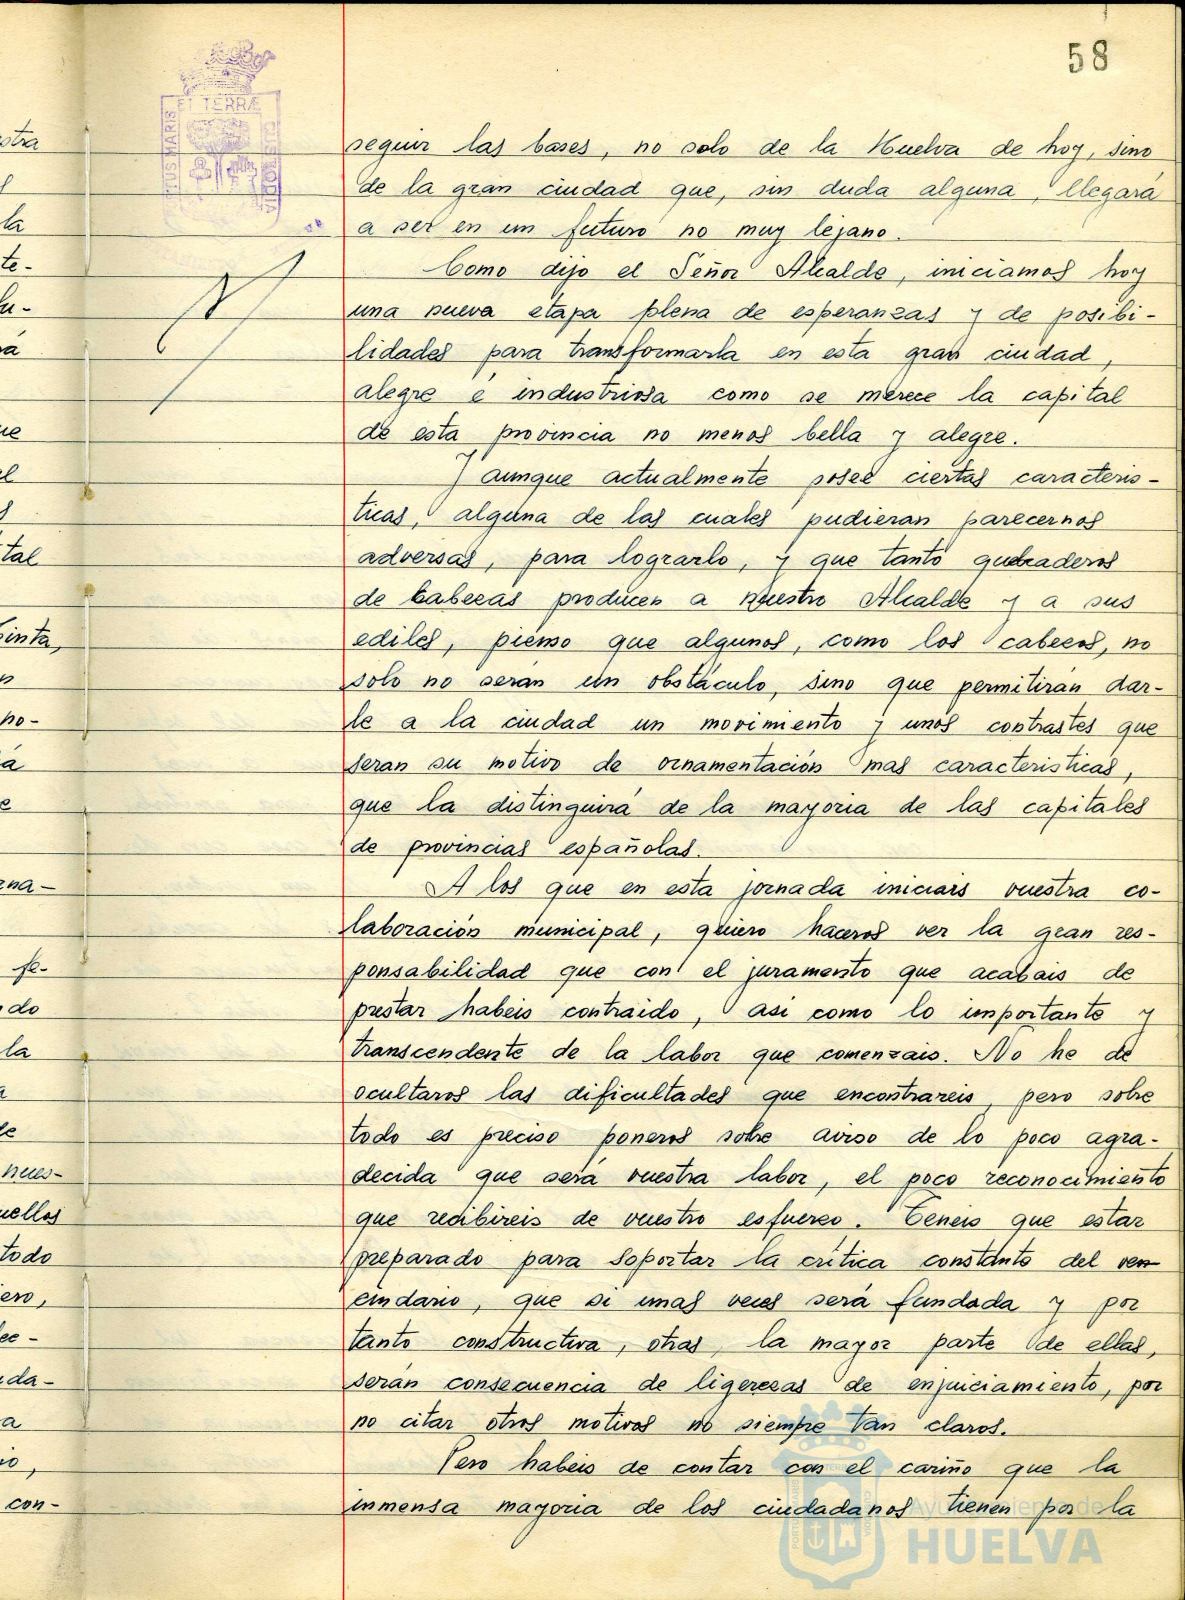 58
ET TERRÆ
seguir las bases, no solo de la Huelva de hoy, sino
de la gran ciudad que, sin duda alguna, llegará
a ser en un futuro no muy lejano.
Como dijo el Señor Alcalde, iniciamos hoy
una nueva etapa plena de esperanzas y de posibi-
lidades para transformarla en esta gran ciudad,
alegre e industriosa como se merece la capital
de esta provincia no menos bella y alegre.
Y aunque actualmente posee ciertas caracteris-
ticas, alguna de las cuales pudieran parecernos
adversas, para lograrlo, y que tanto quebraderos
de cabezas producen a nuestro Alcalde y a sus
ediles, pienso que algunos, como los cabezos, no
solo no serán un obstáculo, sino que permitirán dar-
le a la ciudad un movimiento y unos contrastes que
seran su motivo de ornamentación mas caracteristicas,
que la distinguirá de la mayoria de las capitales
de provincias españolas.
A los que en esta jornada iniciais vuestra co-
laboración municipal, quiero haceros ver la gran res-
ponsabilidad que con el juramento que acabais de
prestar habeis contraido, asi como lo importante y
transcendente de la labor que comenzais. No he de
ocultaros las dificultades que encontrareis, pero sobre
todo es preciso poneros sobre aviso de lo poco agra-
decida que será vuestra labor, el poco reconocimiento
que recibireis de vuestro esfuerzo. Teneis que estar
preparado para soportar la crítica constante del ven-
cindario, que si unas veces será fundada y por
tanto constructiva, otras, la mayor parte de ellas,
serán consecuencia de ligerezas de enjuiciamiento, por
no citar otros motivos no siempre tan claros.
Pero habeis de contar con el cariño que la
inmensa mayoria de los ciudadanos tienen por la
Ayuntamiento de
HUELVA